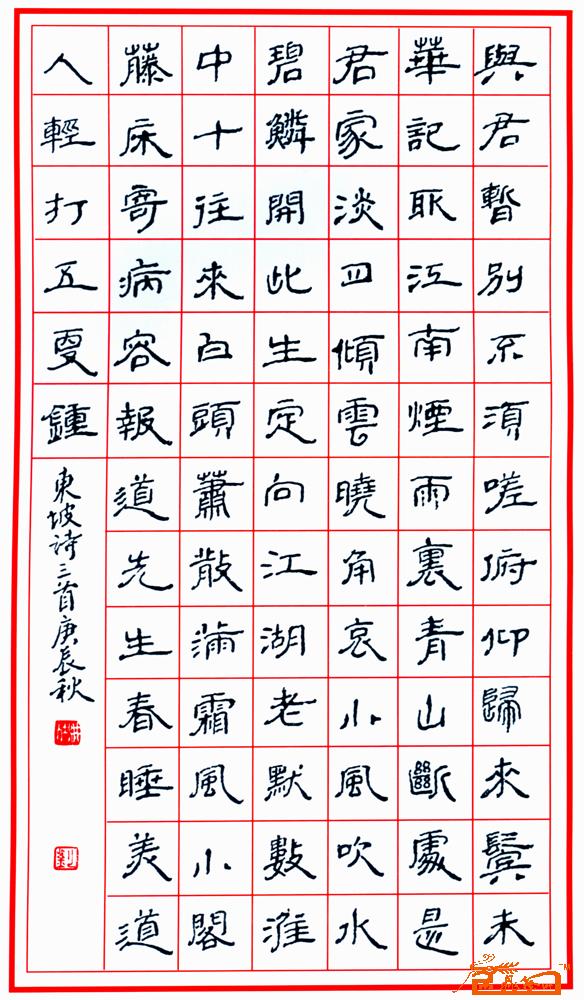 與君暫別不須嗟俯仰歸來鬢未
華記取江南煙雨裏青山斷處是
君家淡四傾雲曉角哀小風吹水
碧鱗開此生定向江湖老默數淮
中十往來白頭蕭散滿霜風小閣
藤床寄病容報道先生春睡美道
人輕打五更鍾
東坡诗三首庚辰秋